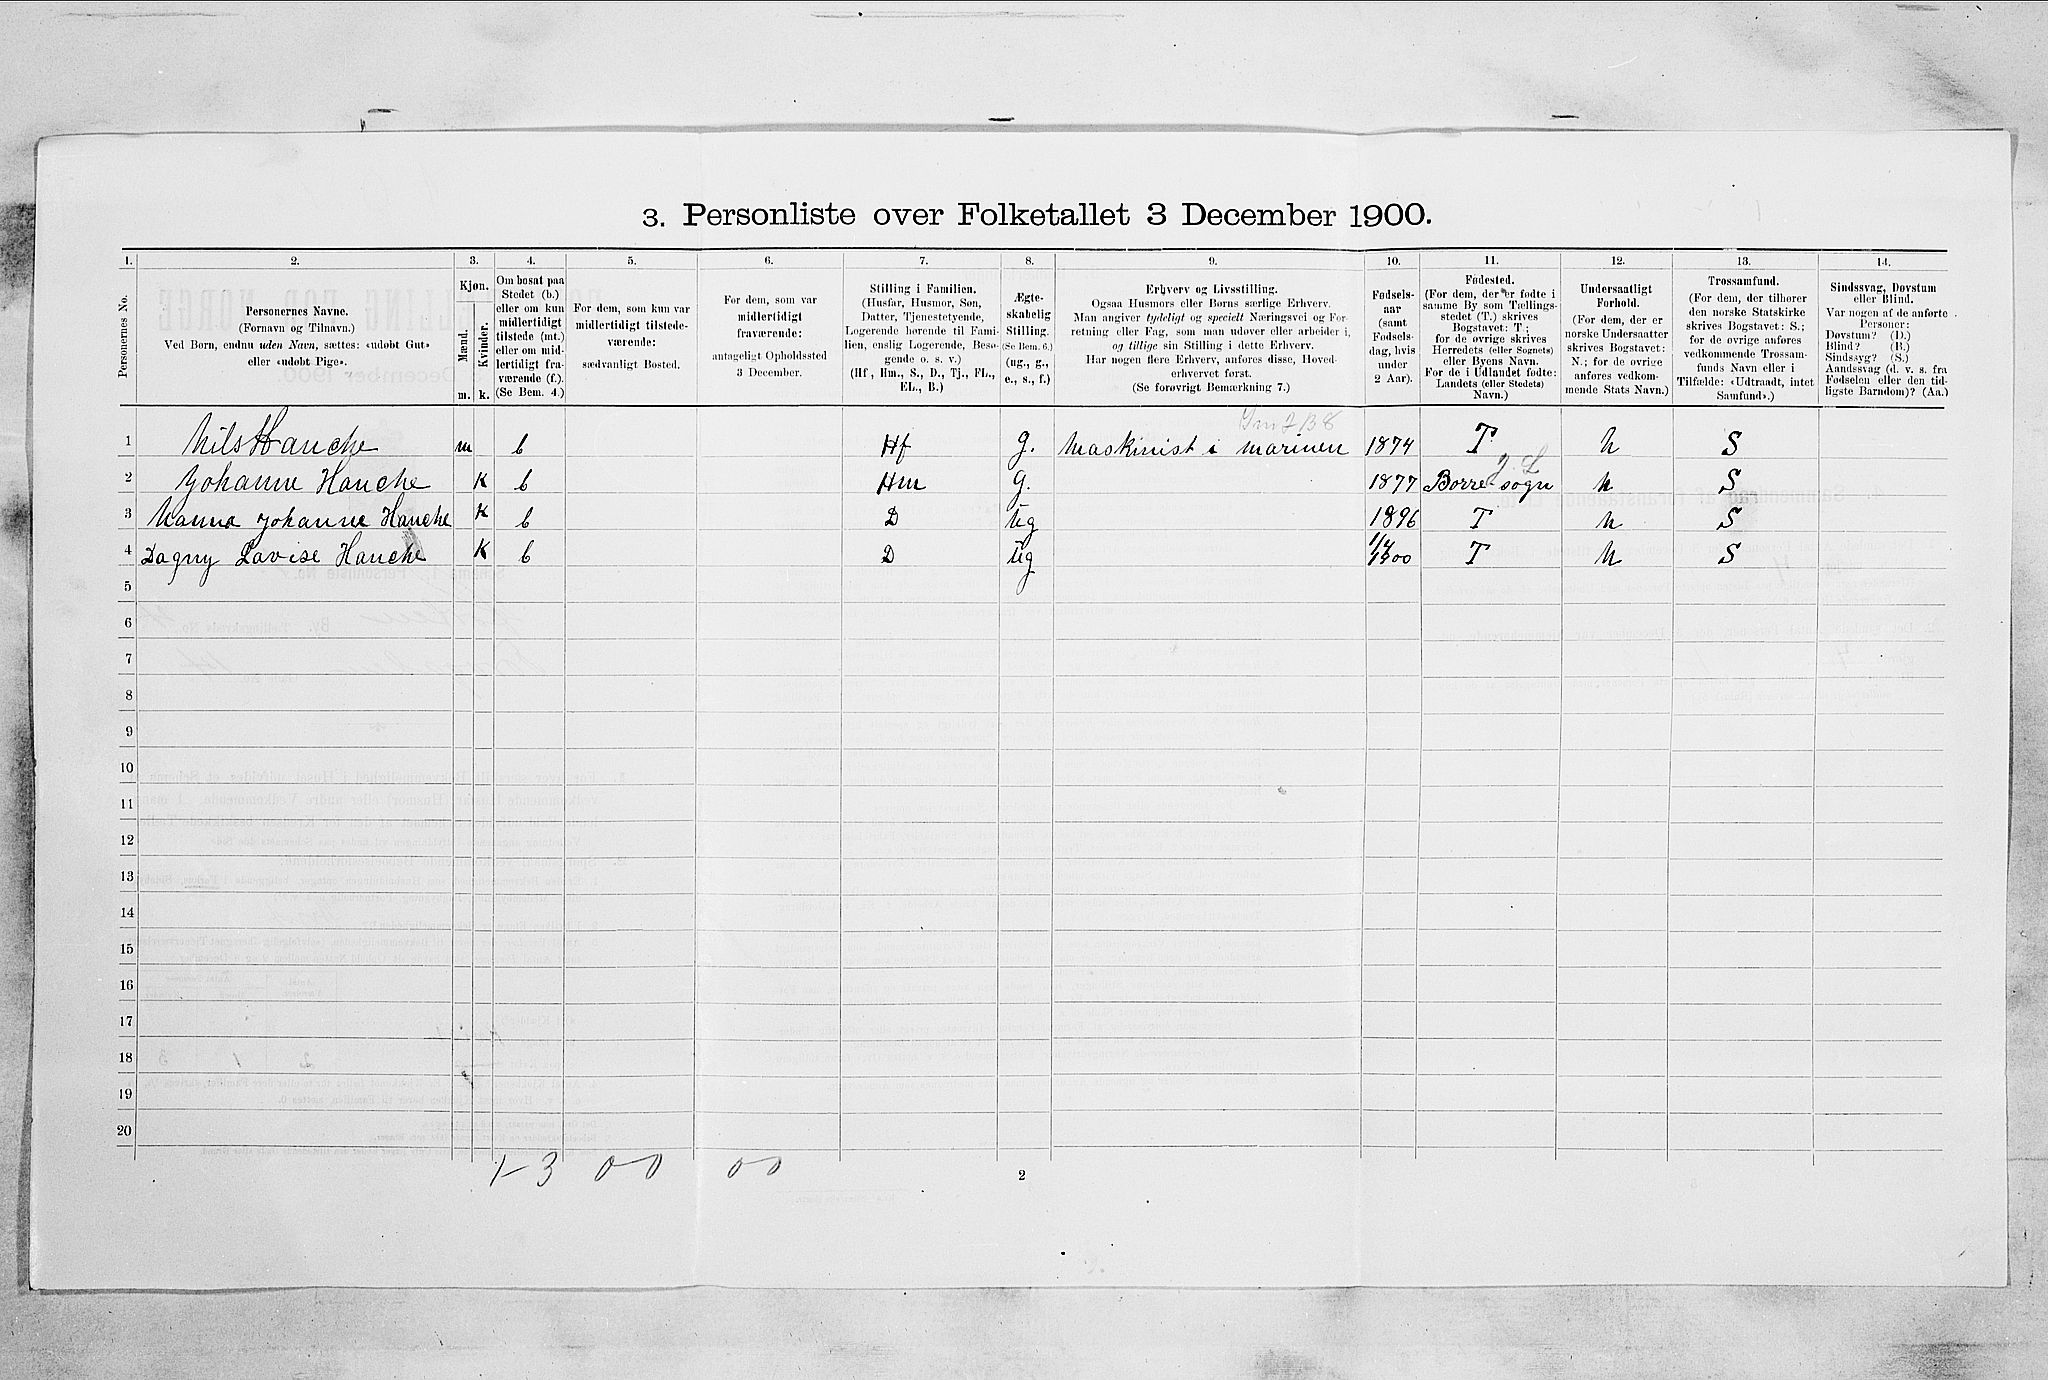 3. Personliste over Folketallet 3 December 1900.
1. 2. 3. 4. 5. 6. 7. 8. 9. 10. 11. 12. 13. 14.
Personernes No.
Personernes Navne.
(Fornavn og Tilnavn.)
Ved Børn, endnu uden Navn, sættes: «udøbt Gut»
eller «udøbt Pige».
Kjøn.
Mænd.
Kvinder.
m. k.
Om bosat paa
Stedet (b.)
eller om kun
midlertidigt
tilstede (mt.)
eller om mid-
lertidigt fra-
værende (f.).
(Se Bem. 4.)
For dem, som kun var
midlertidigt tilstede-
værende:
sædvanligt Bosted.
For dem, som var
midlertidigt
fraværende:
antageligt Opholdssted
3 December.
Stilling i Familien.
(Husfar, Husmor, Søn,
Datter, Tjenestetyende,
Logerende hørende til Fami-
lien, enslig Logerende, Besø-
gende o. s. v.)
(Hf., Hm., S., D., Tj., FL.,
EL., B.)
Ægte-
skabelig
Stilling.
(Se Bem. 6.)
(ug., g.,
e., s., f.)
Erhverv og Livsstilling.
Ogsaa Husmors eller Børns særlige Erhverv.
Man angiver tydeligt og specielt Næringsvei og For-
retning eller Fag, som man udøver eller arbeider i,
og tillige sin Stilling i dette Erhverv.
Har nogen flere Erhverv, anføres disse, Hoved-
erhvervet først.
(Se forøvrigt Bemærkning 7.)
Fødsels-
aar
(samt
Fødsels-
dag, hvis
under
2 Aar).
Fødested.
(For dem, der er fødte i
samme By som Tællings-
stedet (T.) skrives
Bogstavet: T.;
for de øvrige skrives
Herredets (eller Sognets)
eller Byens Navn.
For de i Udlandet fødte:
Landets (eller Stedets)
Navn.)
Undersaatligt
Forhold.
(For dem, der er
norske Undersaatter
skrives Bogstavet:
N.; for de øvrige
anføres vedkom-
mende Stats Navn.)
Trossamfund.
(For dem, der tilhører
den norske Statskirke
skrives Bogstavet: S.;
for de øvrige anføres
vedkommende Trossam-
funds Navn eller i
Tilfælde: «Udtraadt, intet
Samfund».)
Sindssvag, Døvstum
eller Blind.
Var nogen af de anførte
Personer:
Døvstum? (D.)
Blind? (B.)
Sindssyg? (S.)
Aandssvag (d. v. s. fra
Fødselen eller den tid-
ligste Barndom)? (Aa.)
1 Nils Hanche m b Hf g. Maskinist i marinen 1874 T N S
2 Johanne Hanche K b Hm g. 1877 Borre sogn N S
3 Nanna Johanne Hanche K b D ug 1896 T N S
4 Dagny Lovise Hanche K b D ug T N S
5
6
7
8
9
10
11
12
13
14
15
16
17
18
19
20
1-3 00 00
2